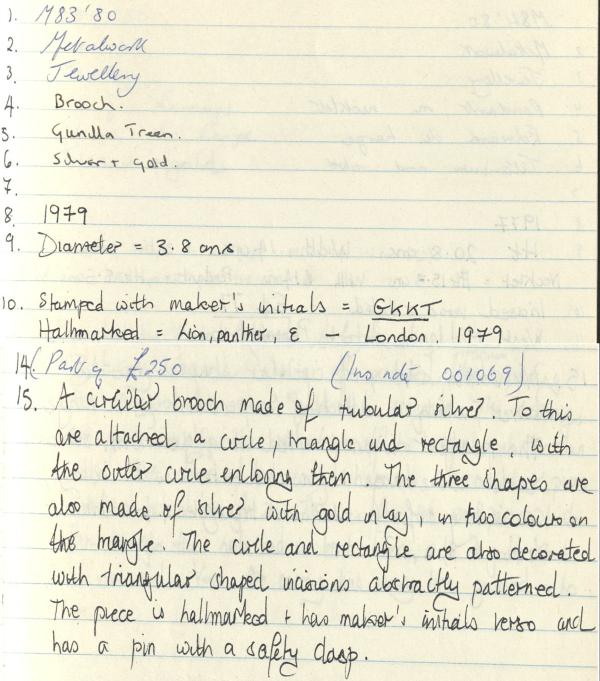 1. M83'80
2. Metalwork
3. Jewellery
4. Brooch.
5. Gunilla Treen.
6. Silver + gold.
7.
8. 1979
9. Diameter = 3.8 cms
10. Stamped with maker's initials = GKKT
Hallmarked = Lion, panther, E - London 1979
14. (Part of £250 (Inv note 001069)
15. A circular brooch made of tubular silver. To this
are attached a circle, triangle and rectangle, with
the outer circle enclosing them. The three shapes are
also made of silver with gold inlay, in two colours on
the triangle. The circle and rectangle are also decorated
with triangular shaped incisions abstractly patterned.
The piece is hallmarked + has maker's initials verso and
has a pin with a safety clasp.